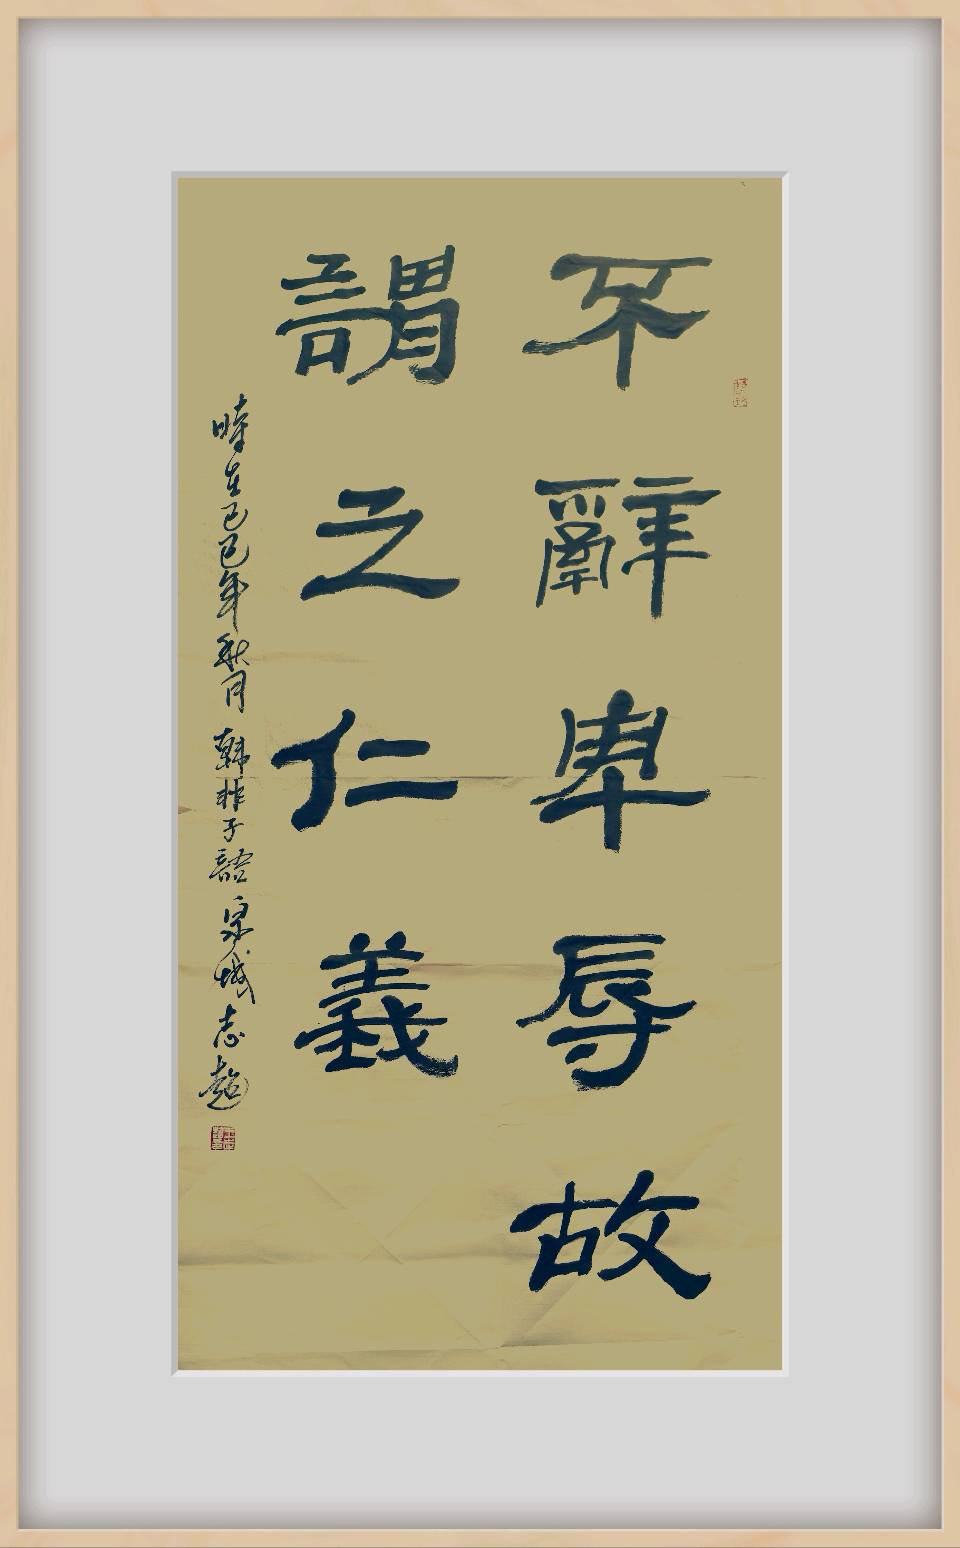 不辭卑辱故
謂之仁義
時在己巳年秋月韩非子語泉城志超